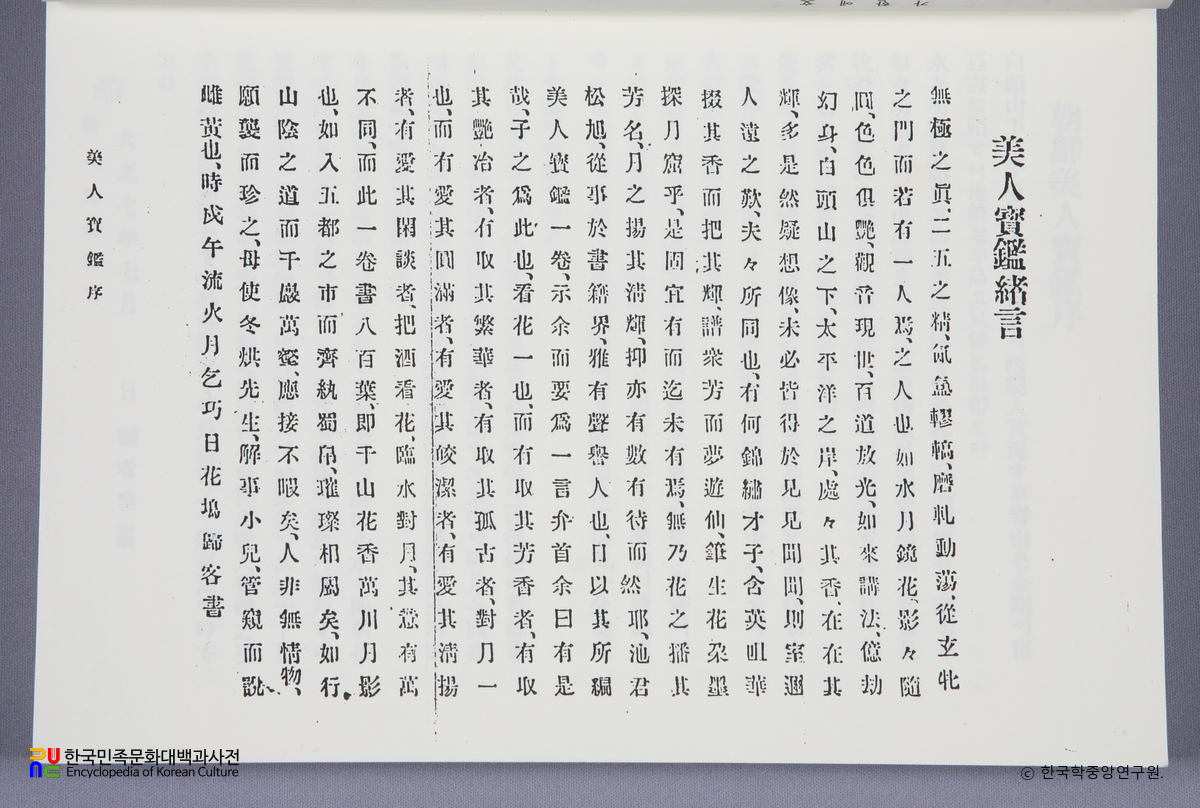 美人寶鑑緒言
無極之眞、二五之精、氤氳轇轕、磨軋動蕩、從玄牝
之門而若有一人焉、之人也如水月鏡花、影々隨
圓、色色俱艷、觀音現世、百道放光、如來講法、億劫
幻身、白頭山之下、太平洋之岸、處々其香、在在其
輝、多是然疑想像、未必皆得於見見聞聞、則室邇
人遠之歎、夫々所同也、有何錦繡才子、含英咀華
掇其香而把其輝、譜衆芳而夢遊仙、筆生花朶墨
探月窟乎、是固宜有而迄未有焉、無乃花之播其
芳名、月之揚其淸輝、抑亦有數有待而然耶、池君
松旭、從事於書籍界、雅有聲譽人也、日以其所編
美人寶鑑一卷、示余而要爲一言弁首余曰有是
哉、子之爲此也、看花一也、而有取其芳香者、有取
其艷冶者、有取其繁華者、有取其孤古者、對月一
也、而有愛其圓滿者、有愛其皎潔者、有愛其淸揚
者、有愛其閑談者、把酒看花、臨水對月、其意有萬
不同、而此一卷書八百葉、卽千山花香萬川月影
也、如入五都之市而齊紈蜀帛、璀璨相屬矣、如行
山陰之道而千巖萬壑、應接不暇矣、人非無情物、
願襲而珍之、毋使冬烘先生、解事小兒、管窺而說
雌黃也、時戊午流火月乞巧日花塢歸客書
美人寶鑑序
한국민족문화대백과사전
Encyclopedia of Korean Culture
ⓒ 한국학중앙연구원.